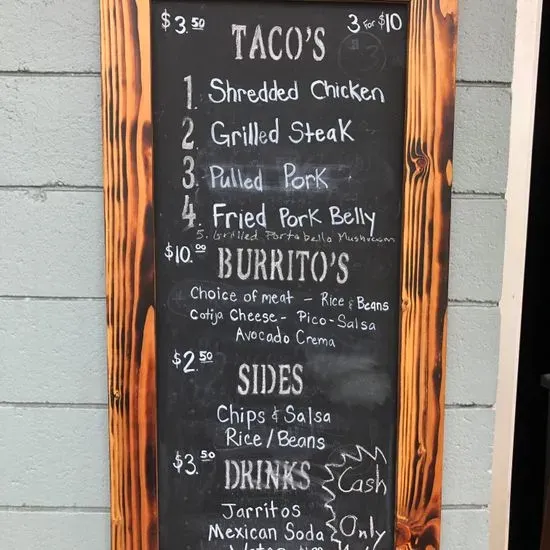 $3.50 3 For $10
TACO'S
1. Shredded Chicken
2. Grilled Steak
3. Pulled Pork
4. Fried Pork Belly
5. Grilled Portabello Mushroom
$10.00
BURRITO'S
Choice of meat - Rice & Beans
Cotija Cheese - Pico-Salsa
Avocado Crema
$2.50
SIDES
Chips & Salsa
Rice/Beans
$3.50
DRINKS
Cash
Only
Jarritos
Mexican Soda